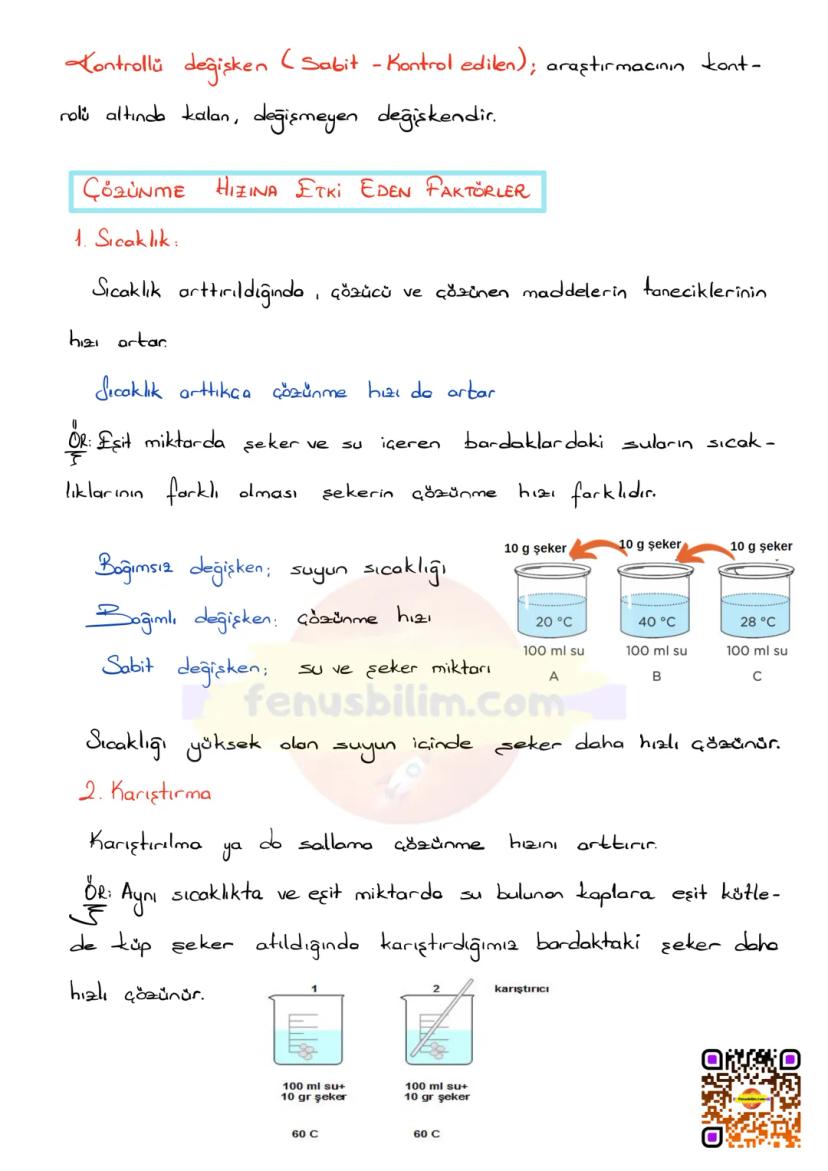 Kontrollü değişken (Sabit - Kontrol edilen); araştırmacının kont-
rolü altında kalan, değişmeyen değişkendir.
ÇÖZÜNME HIZINA ETKİ EDEN FAKTÖRLER
1. Sıcaklık:
Sıcaklık arttırıldığında, çözücü ve çözünen maddelerin taneciklerinin
hızı artar.
Sıcaklık arttıkça çözünme hızı da artar
ÖR: Eşit miktarda şeker ve su içeren bardaklardaki suların sıcak-
lıklarının farklı olması şekerin çözünme hızı farklıdır.
Bağımsız değişken; suyun sıcaklığı
Bağımlı değişken; çözünme hızı
Sabit değişken; su ve şeker miktarı
10 g şeker 10 g şeker 10 g şeker
20 °C 40 °C 28 °C
100 ml su 100 ml su 100 ml su
A B C
fenusbilim.com
Sıcaklığı yüksek olan suyun içinde şeker daha hızlı çözünür.
2. Karıştırma
Karıştırılma ya da sallama çözünme hızını arttırır.
ÖR: Aynı sıcaklıkta ve eşit miktarda su bulunan kaplara eşit kütle-
de küp şeker atıldığında karıştırdığımız bardaktaki şeker daha
hızlı çözünür.
1 2 karıştırıcı
100 ml su+ 100 ml su+
10 gr şeker 10 gr şeker
60 C 60 C
fenusbilim.com